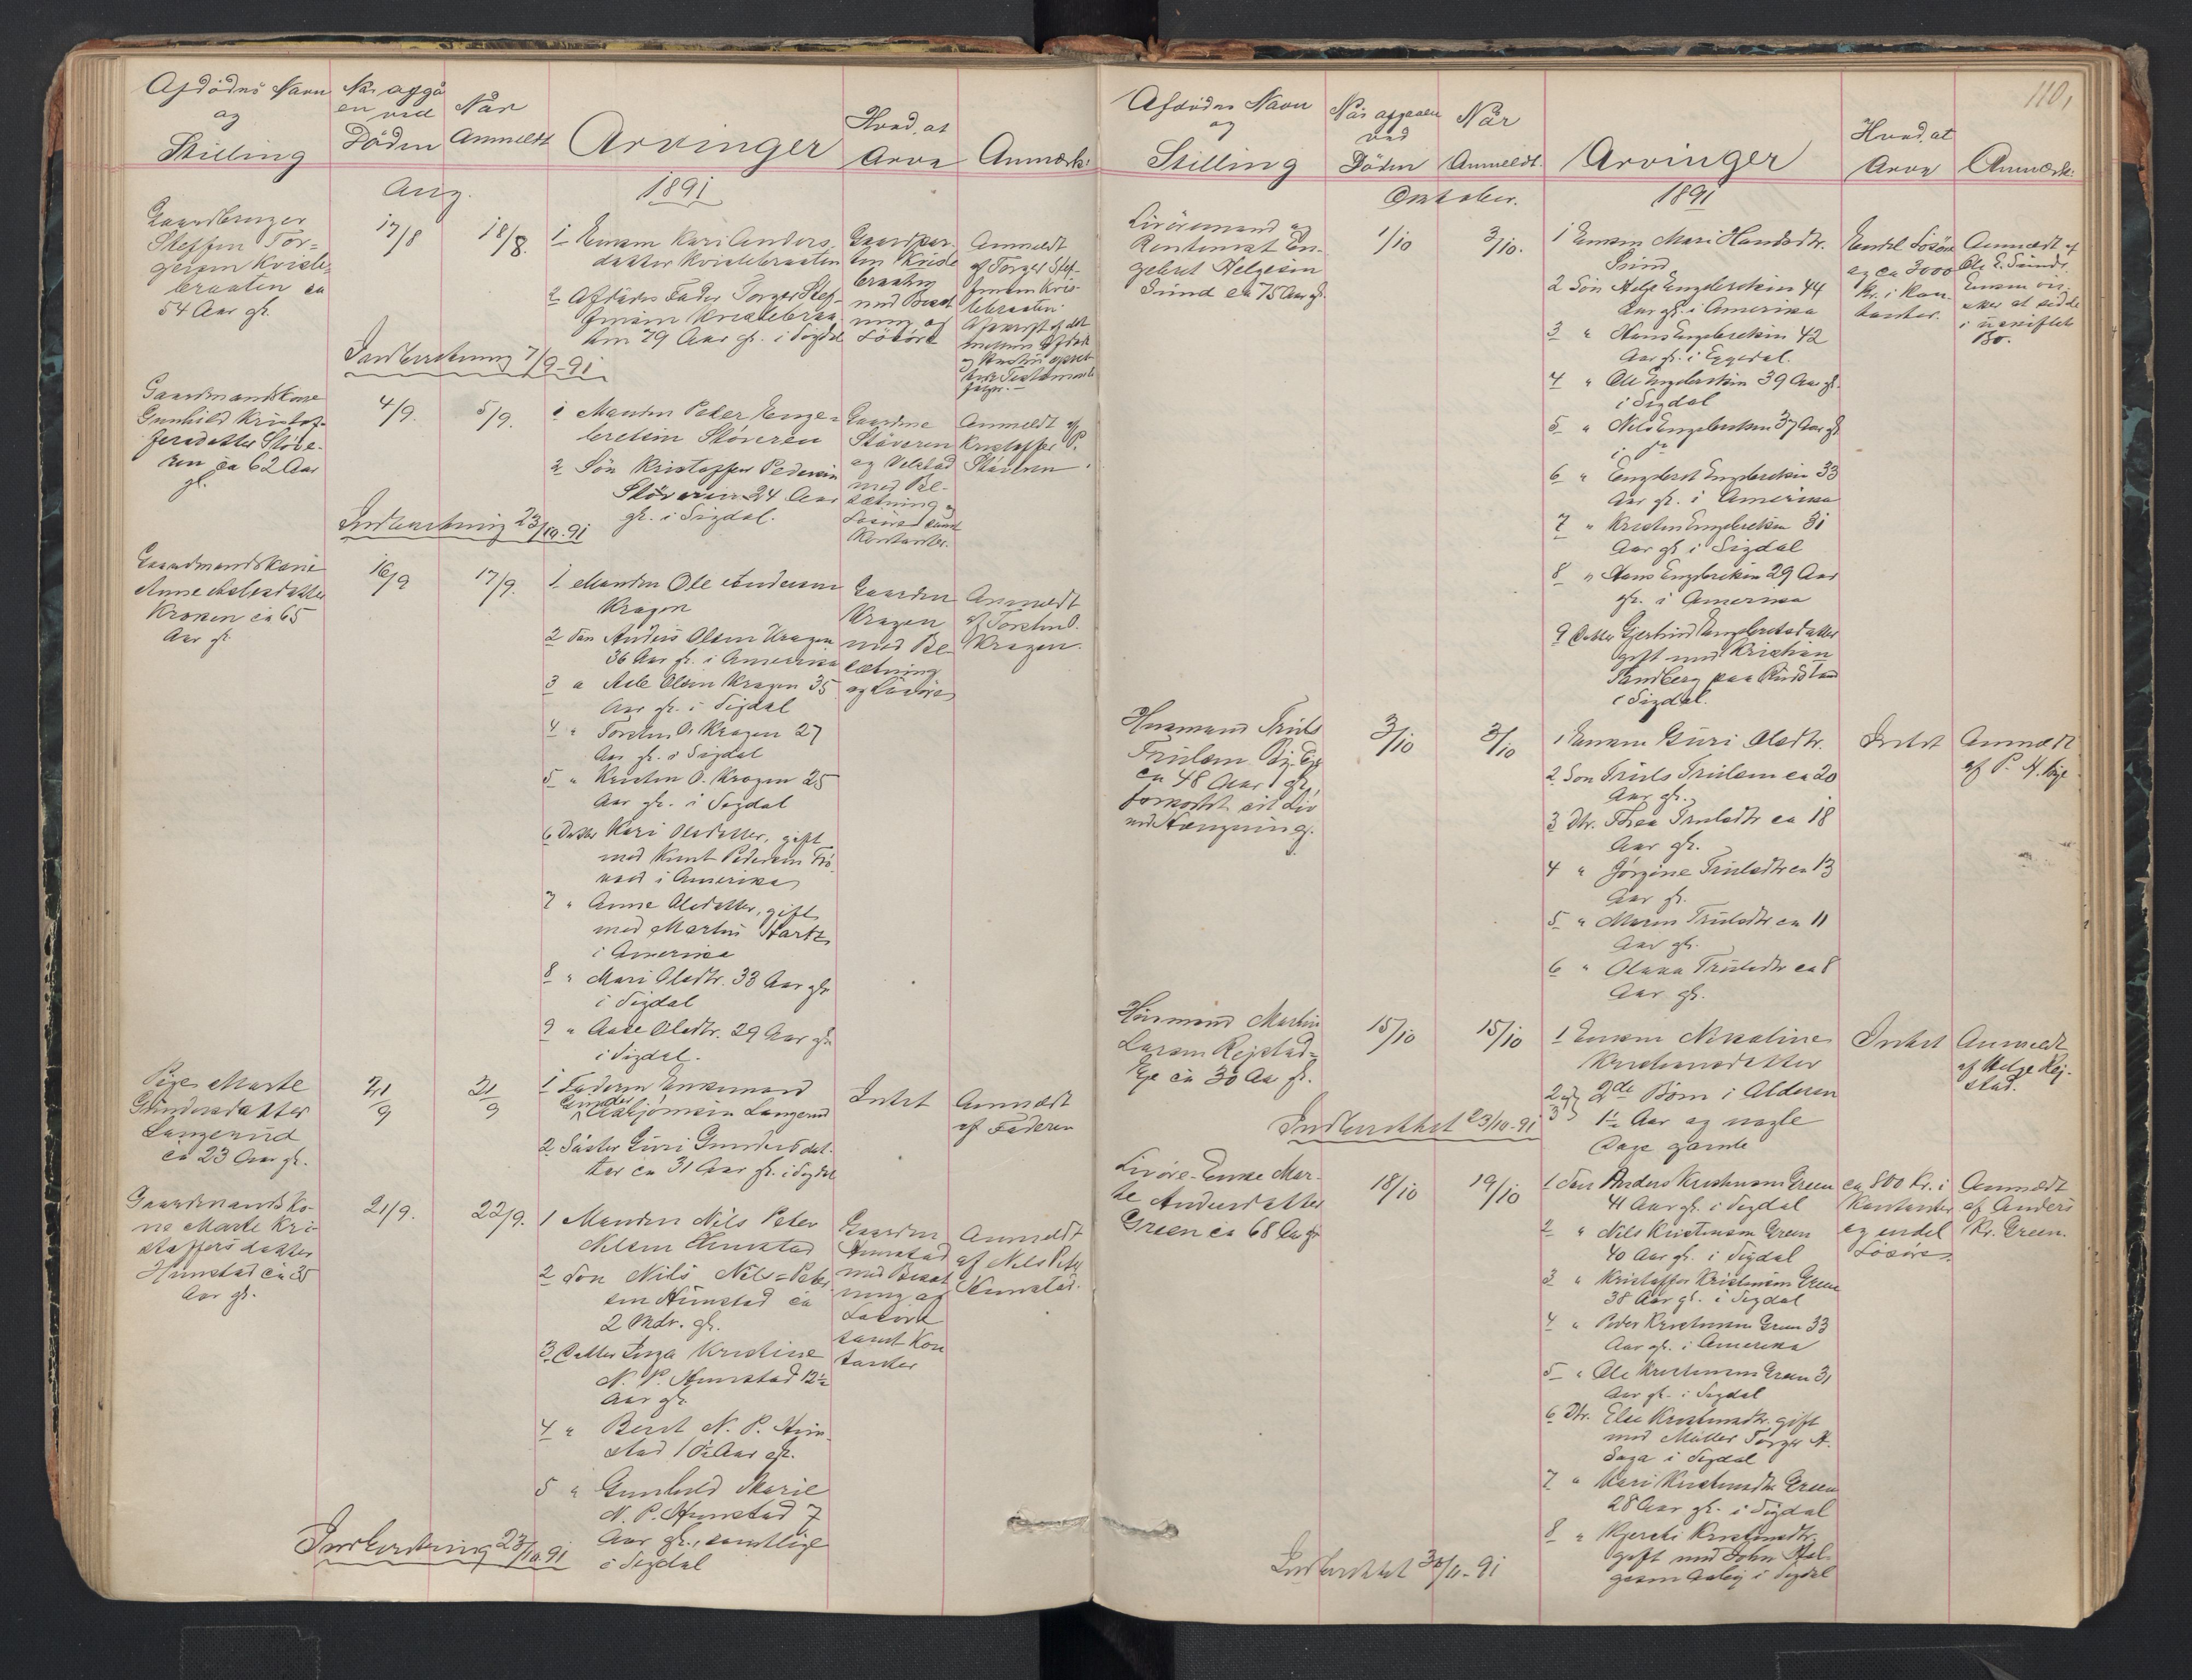 Afdødes Navn
og
Stilling
Når afgå
en ved
Döden
Når
Anmeldt
Arvinger
Hvad at
Arve
Anmærk:
Aug.
1891
Gaardbruger
Steffen Tor=
gersen Kvisle=
braaten ca
54 Aar gl.
17/8
18/8.
1 Enken Kari Anders
datter Kvislebraaten
2 Afdødes Fader Torger Stef-
fensen Kvislebraa
ten 79 Aar gl. i Sigdal
Gaardpar
ten Kvisle
braaten
med Besæt
ning og
Løsøre
Anmeldt
af Torger Stef-
fensen Kvis-
lebraaten
Indberetning 7/9-91
Gaardmandskone
Gunhild Kristof-
fersdatter Støve-
ren ca 62 Aar
gl.
4/9.
5/9.
1 Manden Peder Enge=
bretsen Støveren
2 Søn Kristoffer Pedersen
Støveren 24 Aar
gl. i Sigdal.
Gaardene
Støveren
og Velstad
med Be-
sætning og
Løsøre samt
Kontanter.
Anmeldt af
Kristoffer P.
Støveren
Indberetning 23/10-91
Gaardmandskone
Anne Asles datter
Kroken ca 65
Aar gl.
16/9
17/9.
1 Manden Ole Andersen
Kragen
2 Søn Anders Olsen Kragen
36 Aar gl. i Amerika
3 " Asle Olsen Kragen 35
Aar gl. i Sigdal
4 " Torsten O. Kragen 27
Aar gl. i Sigdal
5 " Kristen O. Kragen 25
Aar gl. i Sigdal
6 Datter Kari Olsdatter, gift
med Knut Pedersen
i Amerika
7 " Anne Olsdatter, gift
med Martin
i Amerika
8 " Mari Olsdtr. 33 Aar gl
i Sigdal
9 " Aase Olsdtr. 29 Aar gl.
i Sigdal.
Gaarden
Kragen
med Be-
sætning
og Løsøre
Anmeldt
af Torsten O.
Kragen.
Pige Marte
Gundersdatter
Langerud
ca 23 Aar gl.
21/9
1 Faderen Enkemand
Gunder Asbjørnsen Langerud
2 Søster Guri Gundersdat-
ter ca 31 Aar gl. i Sigdal
Intet
Anmeldt
af Faderen
Gaardmandsko-
ne Marte Kri-
stoffersdatter
Hunstad ca 35
Aar gl.
21/9.
22/9.
1 Manden Nils Peter
Nilsen Hunstad
2 Søn Nils Nils=Peter
sen Hunstad ca
2 Mdr. gl.
3 Datter Inga Kristine
N. P. Hunstad 12½
Aar gl.
4 " Berit N. P. Hun-
stad 10½ Aar gl.
5 " Gunhild Marie
N. P. Hunstad 7
Aar gl., samtlige
i Sigdal
Gaarden
Hunstad
med Besæt
ning og
Løsøre
samt Kon
tanter
Anmeldt
af Nils Peter
Hunstad.
Indberetning 23/10.91
110,
Afdødes Navn
og
Stilling
Når afgaaen
ved
Döden
Når
Anmeldt.
Arvinger
Hvad at
Arve
Anmærk:
Oktober.
1891
Livöremand og
Rentenist En-
gebret Helgesen
Lund ca 75 Aar gl.
1/10
3/10.
1 Enken Mari Hansdtr.
2 Søn Helge Engebretsen 44
Aar gl. i Amerika
3 " Hans Engebretsen 42
Aar gl. i Eggedal.
4 " Ole Engebretsen 39 Aar gl.
i Sigdal
5 " Nils Engebretsen 37 Aar gl
i do
6 " Engebret Engebretsen 33
Aar gl. i Amerika
7 " Kristen Engebretsen 31
Aar gl i Sigdal
8 " Hans Engebretsen 29 Aar
gl. i Amerika
9 Datter Gjertrud Engebretsdatter
gift med Kristian
Sandberg paa
i Sigdal.
Endel Løsøre
og ca 3000
Kr. i Kon-
tanter.
Anmeldt af
Ole E.
Enken øn-
sker at sidde
i uskiftet
Bo.
Husmand Truls
Trulsen
ca 48 Aar gl,
forkortet sit Liv
ved Hængning.
3/10
3/10
1 Enken Guri Olsdtr.
2 Søn Truls Trulsen ca 20
Aar gl.
3 Dtr. Thea Trulsdtr ca 18
Aar gl.
4 " Jørgine Trulsdtr ca 13
Aar gl.
5 " Maren Trulsdtr ca 11
Aar gl.
6 " Olava Trulsdtr ca 8
Aar gl.
Intet
Anmeldt
af P. H. Bye
Husmand Martin
Larsen Rejstad=
Eje ca 30 Aar gl.
15/10
15/10
1 Enken Nikoline
Kristiansdatter
2 og 2de Børn i Alderen
3 1½ Aar og nogle
Dage gamle
Intet
Anmeldt
af Helge Rej-
stad.
Indberettet 23/10-91
Livøre-Enke Mar-
te Andersdatter
Green ca 68 Aar gl
18/10
19/10
1 Søn Anders Kristensen Green
41 Aar gl. i Sigdal
2 " Nils Kristensen Green
40 Aar gl. i Sigdal
3 " Kristoffer Kristensen Green
38 Aar gl. i Sigdal
4 " Peder Kristensen Green 33
Aar gl. i Amerika
5 " Ole Kristensen Green 31
Aar gl. i Sigdal
6 Dtr. Else Kristensdtr. gift
med Møller Torger A.
Saga i Sigdal
7 " Kari Kristensdtr Green
28 Aar gl. i Sigdal
8 " Kjersti Kristensdtr.
gift med John Hel-
gesen Aaby i Sigdal
ca 800 Kr. i
Kontanter
og endel
Løsøre.
Anmeldt
af Anders
Kr. Green.
Indberettet 30/11-91